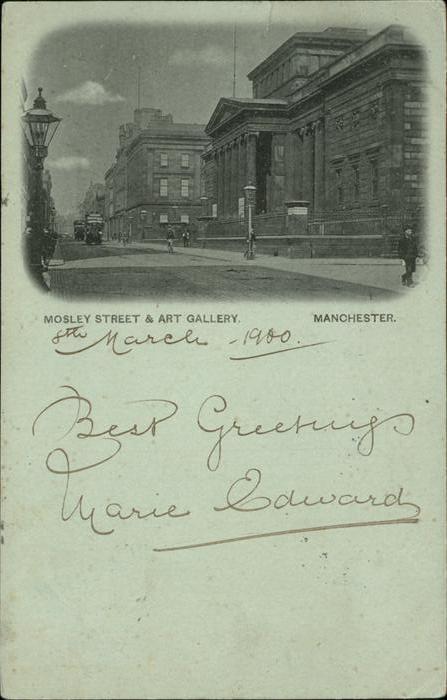 MOSLEY STREET & ART GALLERY. MANCHESTER.
8th March - 1900.
Best Greetings
Marie Edward